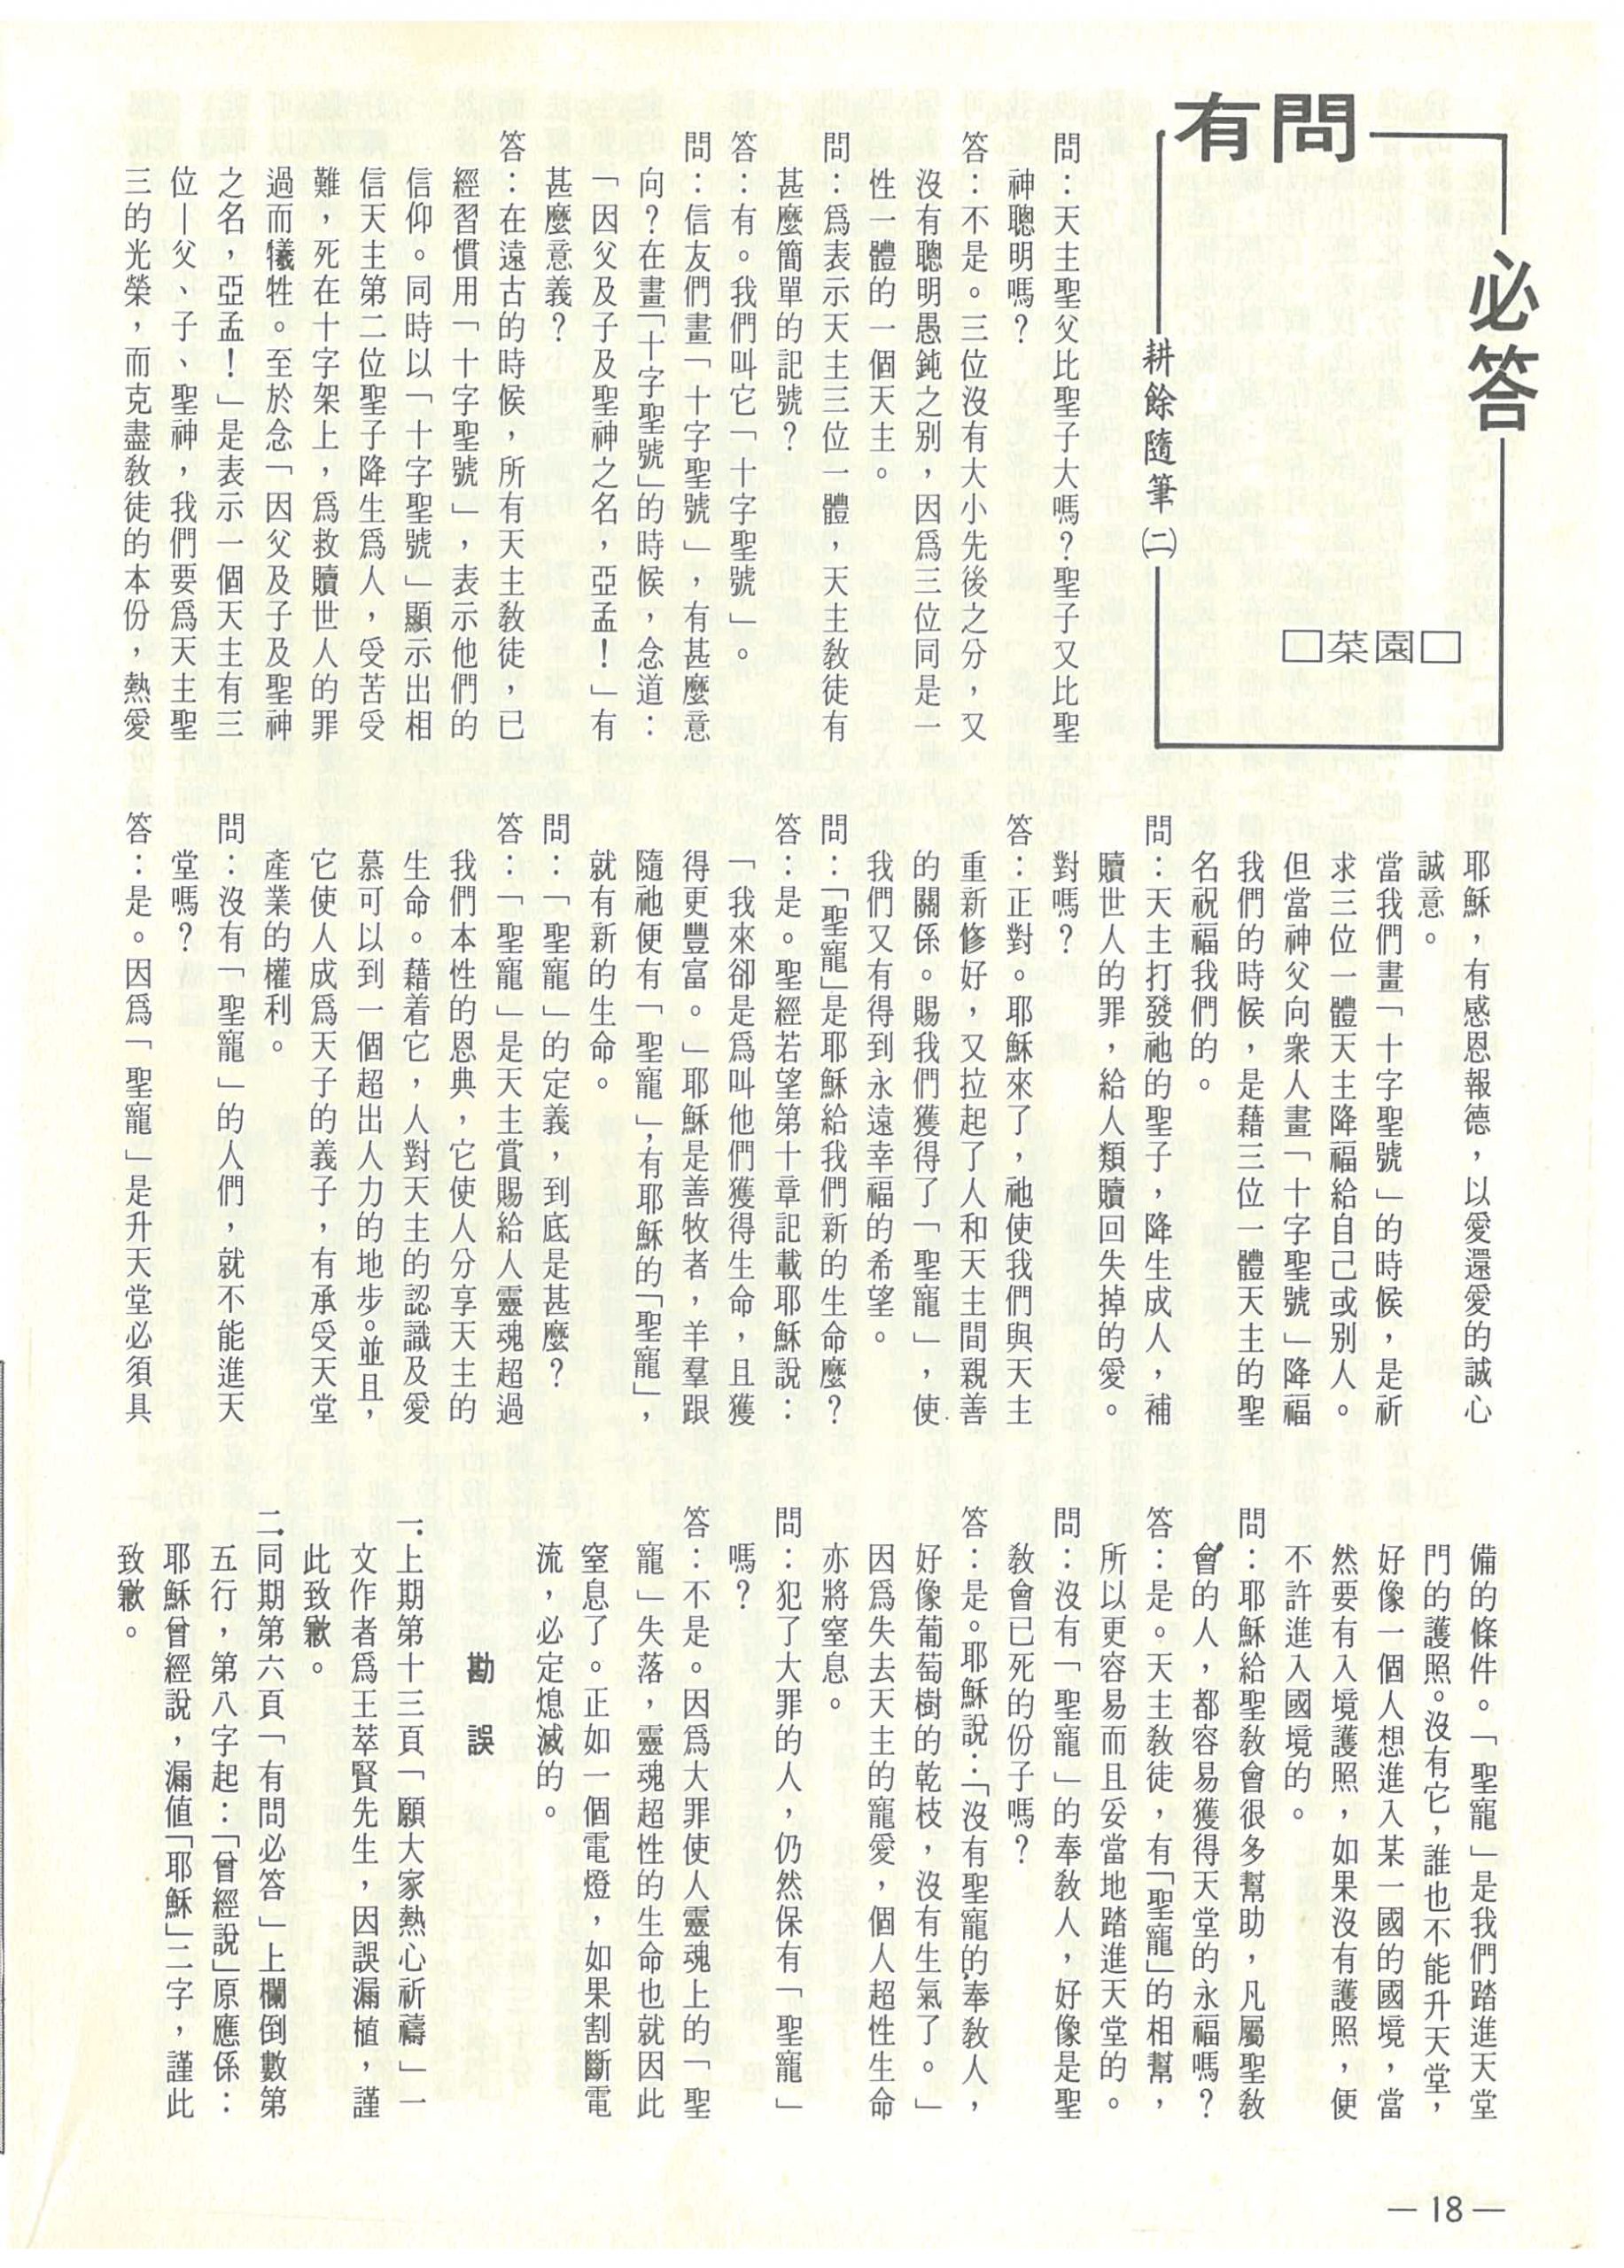 有問
必答
耕餘隨筆㈡
□菜園□
問：天主聖父比聖子大嗎？聖子又比聖
神聰明嗎？
答：不是。三位沒有大小先後之分，又
沒有聰明愚鈍之別，因爲三位同是一
性一體的一個天主。
問：爲表示天主三位一體，天主教徒有
甚麼簡單的記號？
答：有。我們叫它「十字聖號」。
問：信友們畫「十字聖號」，有甚麼意
向？在畫「十字聖號」的時候，念道：
「因父及子及聖神之名，亞孟！」有
甚麼意義？
答：在遠古的時候，所有天主教徒，已
經習慣用「十字聖號」，表示他們的
信仰。同時以「十字聖號」顯示出相
信天主第二位聖子降生爲人，受苦受
難，死在十字架上，爲救贖世人的罪
過而犧牲。至於念「因父及子及聖神
之名，亞孟！」是表示一個天主有三
位—父、子、聖神，我們要爲天主聖
三的光榮，而克盡教徒的本份，熱愛
耶穌，有感恩報德，以愛還愛的誠心
誠意。
當我們畫「十字聖號」的時候，是祈
求三位一體天主降福給自己或別人。
但當神父向衆人畫「十字聖號」降福
我們的時候，是藉三位一體天主的聖
名祝福我們的。
問：天主打發祂的聖子，降生成人，補
贖世人的罪，給人類贖回失掉的愛。
對嗎？
答：正對。耶穌來了，祂使我們與天主
重新修好，又拉起了人和天主間親善
的關係。賜我們獲得了「聖寵」，使
我們又有得到永遠幸福的希望。
問：「聖寵」是耶穌給我們新的生命麼？
答：是。聖經若望第十章記載耶穌說：
「我來卻是爲叫他們獲得生命，且獲
得更豐富。」耶穌是善牧者，羊羣跟
隨祂便有「聖寵」；有耶穌的「聖寵」，
就有新的生命。
問：「聖寵」的定義，到底是甚麼？
答：「聖寵」是天主賞賜給人靈魂超過
我們本性的恩典，它使人分享天主的
生命。藉着它，人對天主的認識及愛
慕可以到一個超出人力的地步。並且，
它使人成爲天子的義子，有承受天堂
產業的權利。
問：沒有「聖寵」的人們，就不能進天
堂嗎？
答：是。因爲「聖寵」是升天堂必須具
備的條件。「聖寵」是我們踏進天堂
門的護照。沒有它，誰也不能升天堂，
好像一個人想進入某一國的國境，當
然要有入境護照，如果沒有護照，便
不許進入國境的。
問：耶穌給聖教會很多幫助，凡屬聖教
會的人，都容易獲得天堂的永福嗎？
答：是。天主教徒，有「聖寵」的相幫，
所以更容易而且妥當地踏進天堂的。
問：沒有「聖寵」的奉教人，好像是聖
教會已死的份子嗎？
答：是。耶穌說：「沒有聖寵的奉教人，
好像葡萄樹的乾枝，沒有生氣了。」
因爲失去天主的寵愛，個人超性生命
亦將窒息。
問：犯了大罪的人，仍然保有「聖寵」
嗎？
答：不是。因爲大罪使人靈魂上的「聖
寵」失落，靈魂超性的生命也就因此
窒息了。正如一個電燈，如果割斷電
流，必定熄滅的。
勘誤
一．上期第十三頁「願大家熱心祈禱」一
文作者爲王萃賢先生，因誤漏植，謹
此致歉。
二．同期第六頁「有問必答」上欄倒數第
五行，第八字起：「曾經說」原應係：
耶穌曾經說，漏值「耶穌」二字，謹此
致歉。
— 18 —